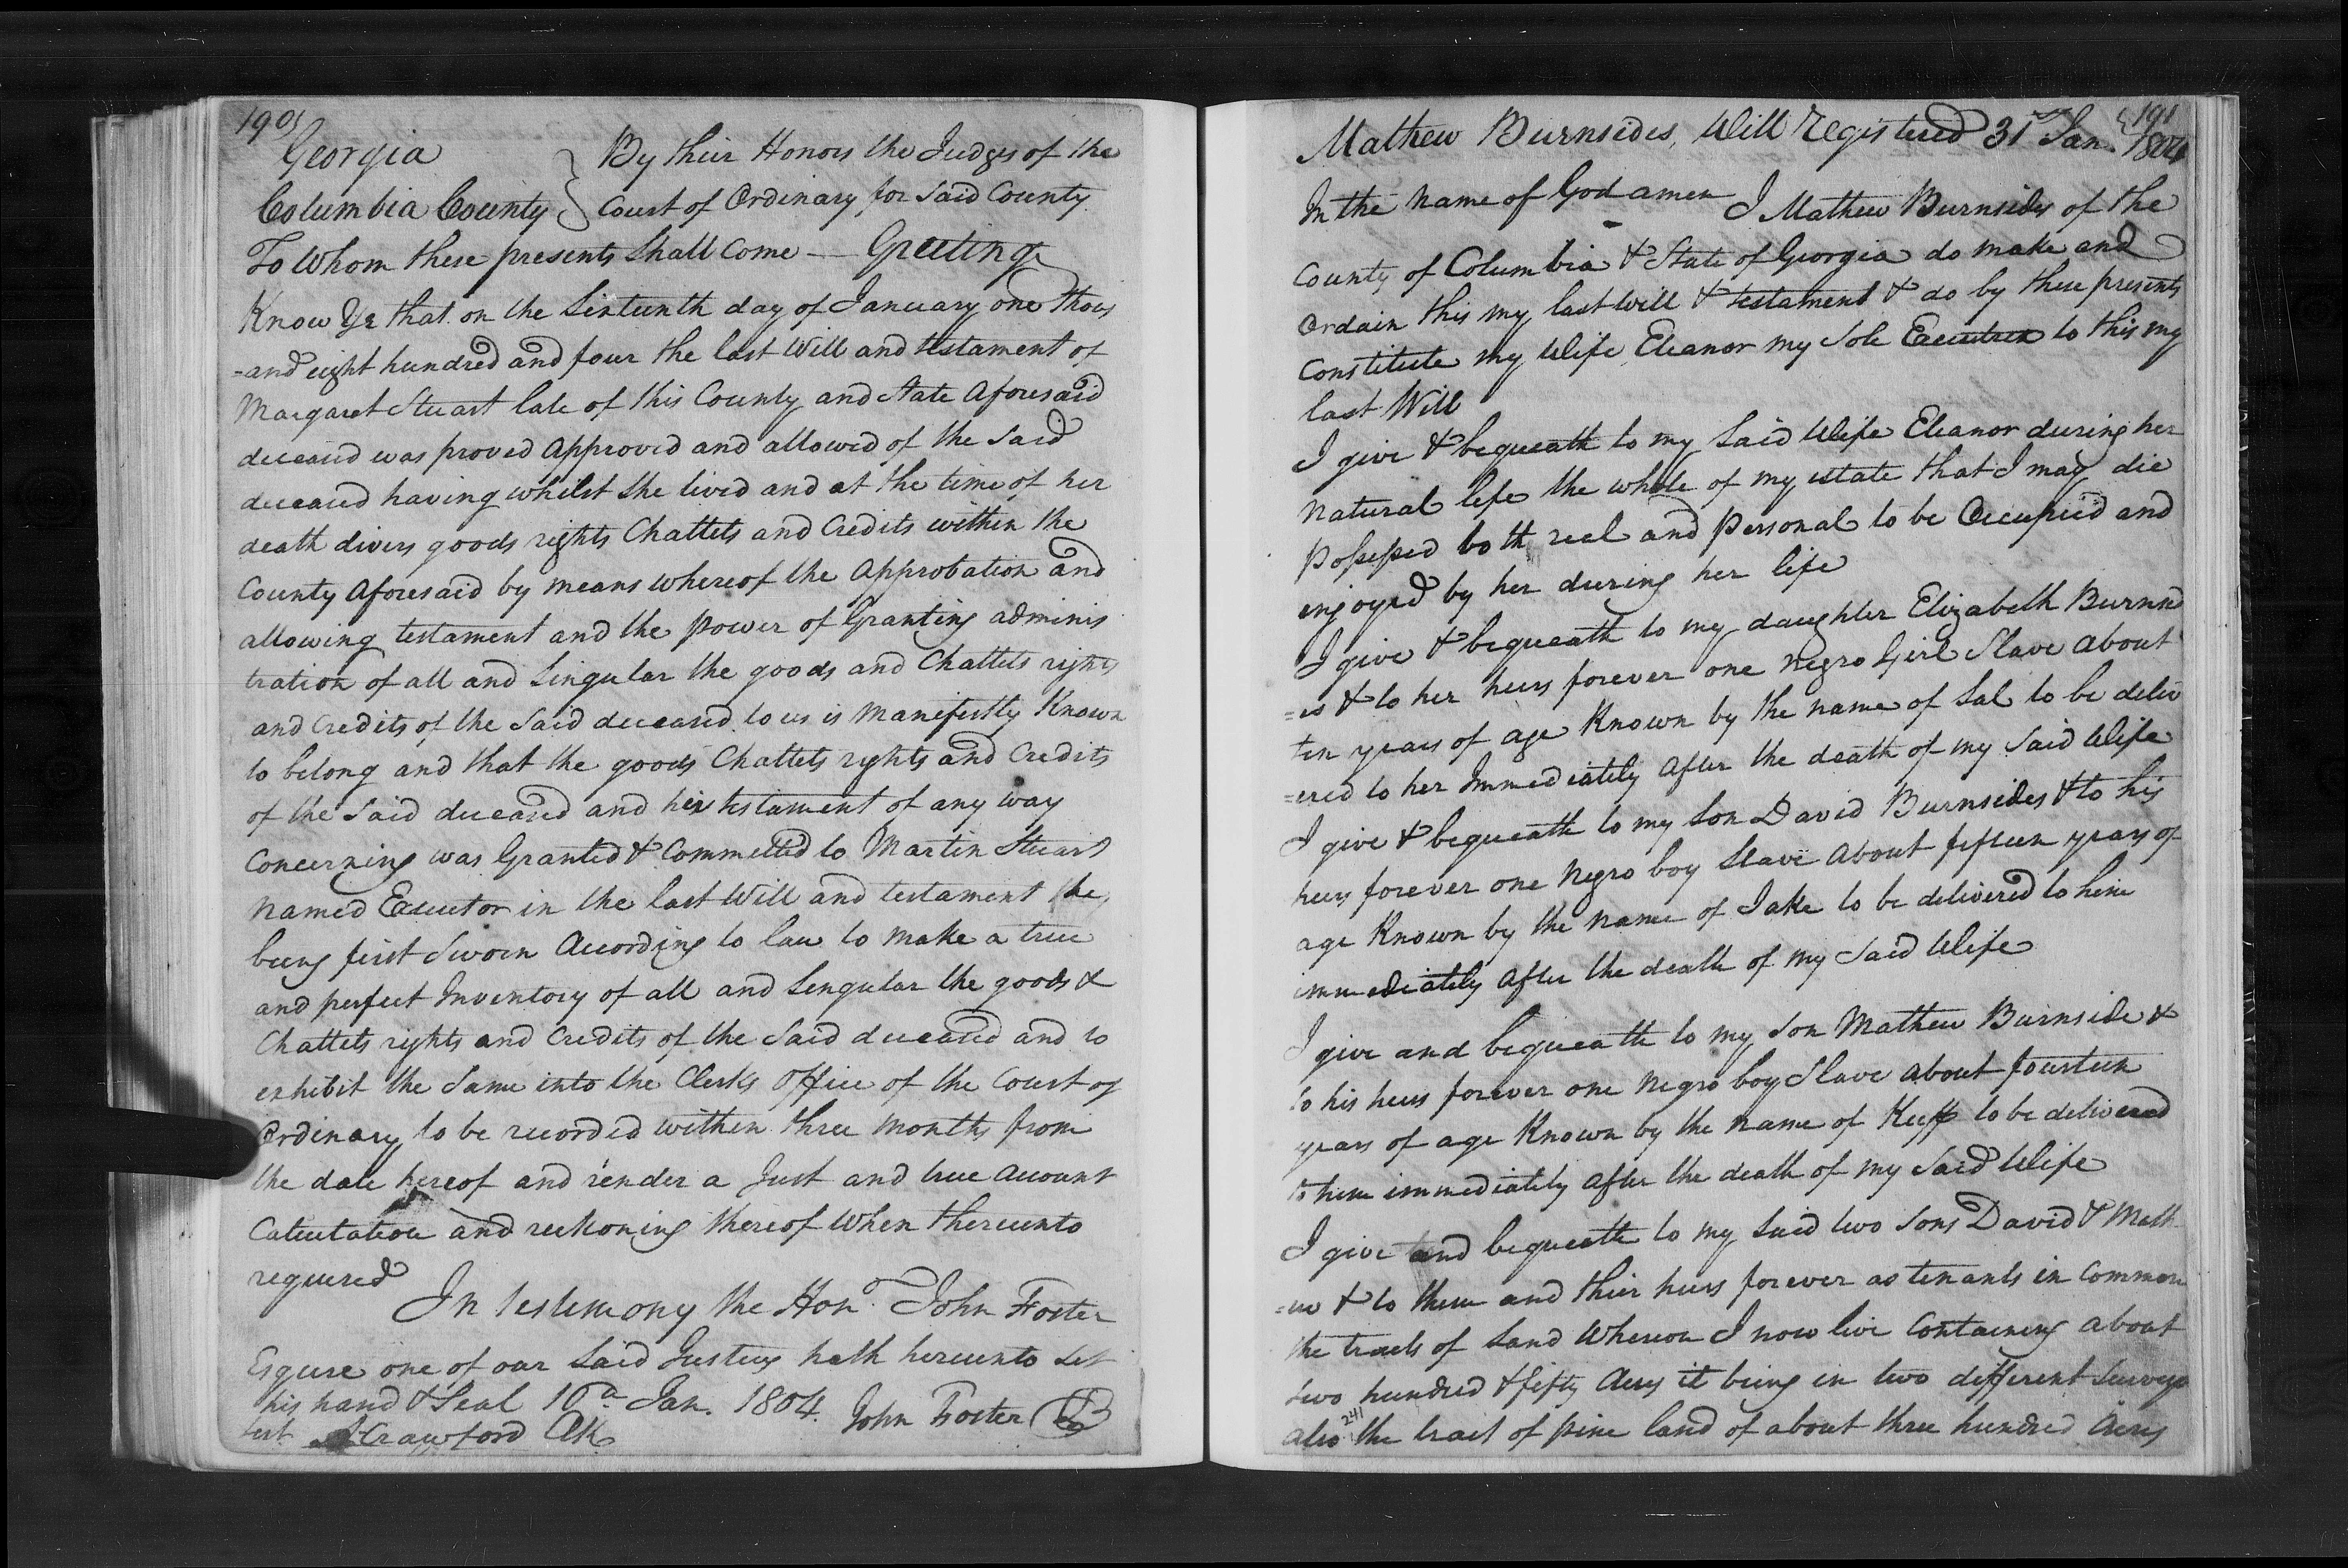 190
Georgia } By their Honors the Judges of the
Columbia County } Court of Ordinary for Said County
To Whom these presents Shall Come — Greeting
Know Ye that on the Sixteenth day of January one thous
=and eight hundred and four the last Will and testament of
Margaret Stuart late of this County and State Aforesaid
deceased was proved Approved and allowed of the Said
deceased having whilst She lived and at the time of her
death divers goods rights Chattels and Credits within the
County Aforesaid by means whereof the Approbation and
allowing testament and the power of Granting adminis
tration of all and Singular the goods and Chattels rights
and Credits of the Said deceased to us is Manifestly Known
to belong and that the goods Chattels rights and Credits
of the Said deceased and her testament of any way
Concerning was Granted & Committed to Martin Stuart
Named Executor in the last Will and testament he
being first Sworn According to law to make a true
and perfect Inventory of all and Singular the goods &
Chattels rights and Credits of the Said deceased and to
exhibit the Same into the Clerks Office of the Court of
Ordinary to be recorded within three Months from
the date hereof and render a Just and true account
Calculation and reckoning thereof When thereunto
required
In testimony the Hon. John Foster
Esquire one of our Said Justices hath hereunto Set
his hand & Seal 16 Jan. 1804. John Foster
test Crawford Clk
191
Mathew Burnsides, Will Registered 31 Jan. 1804
In the Name of God amen I Mathew Burnsides of the
County of Columbia & State of Georgia do make and
Ordain this my last Will & testament & do by these presents
Constitute my Wife Eleanor my Sole Executrix to this my
last Will
I give & bequeath to my Said Wife Eleanor during her
Natural life the whole of my estate that I may die
possessed both real and personal to be Occupied and
enjoyed by her during her life
I give & bequeath to my daughter Elizabeth Burnsid
=es & to her heirs forever one Negro Girl Slave about
ten years of age Known by the name of Sal to be deliv
=ered to her Immediately After the death of my Said Wife
I give & bequeath to my Son David Burnsides & to his
heirs forever one Negro boy Slave About fifteen years of
age Known by the name of Jake to be delivered to him
immediately After the death of my Said Wife
I give and bequeath to my Son Mathew Burnside &
to his heirs forever one Negro boy Slave about fourteen
years of age Known by the name of to be delivered
to him immediately After the death of my Said Wife
I give and bequeath to my Said two Sons David & Math
=ew & to them and thier heirs forever as tenants in Common
the tracts of Land Whereon I now live Containing about
two hundred & fifty Acres it being in two different Surveys
241
also the tract of pine land of about three hundred Acres